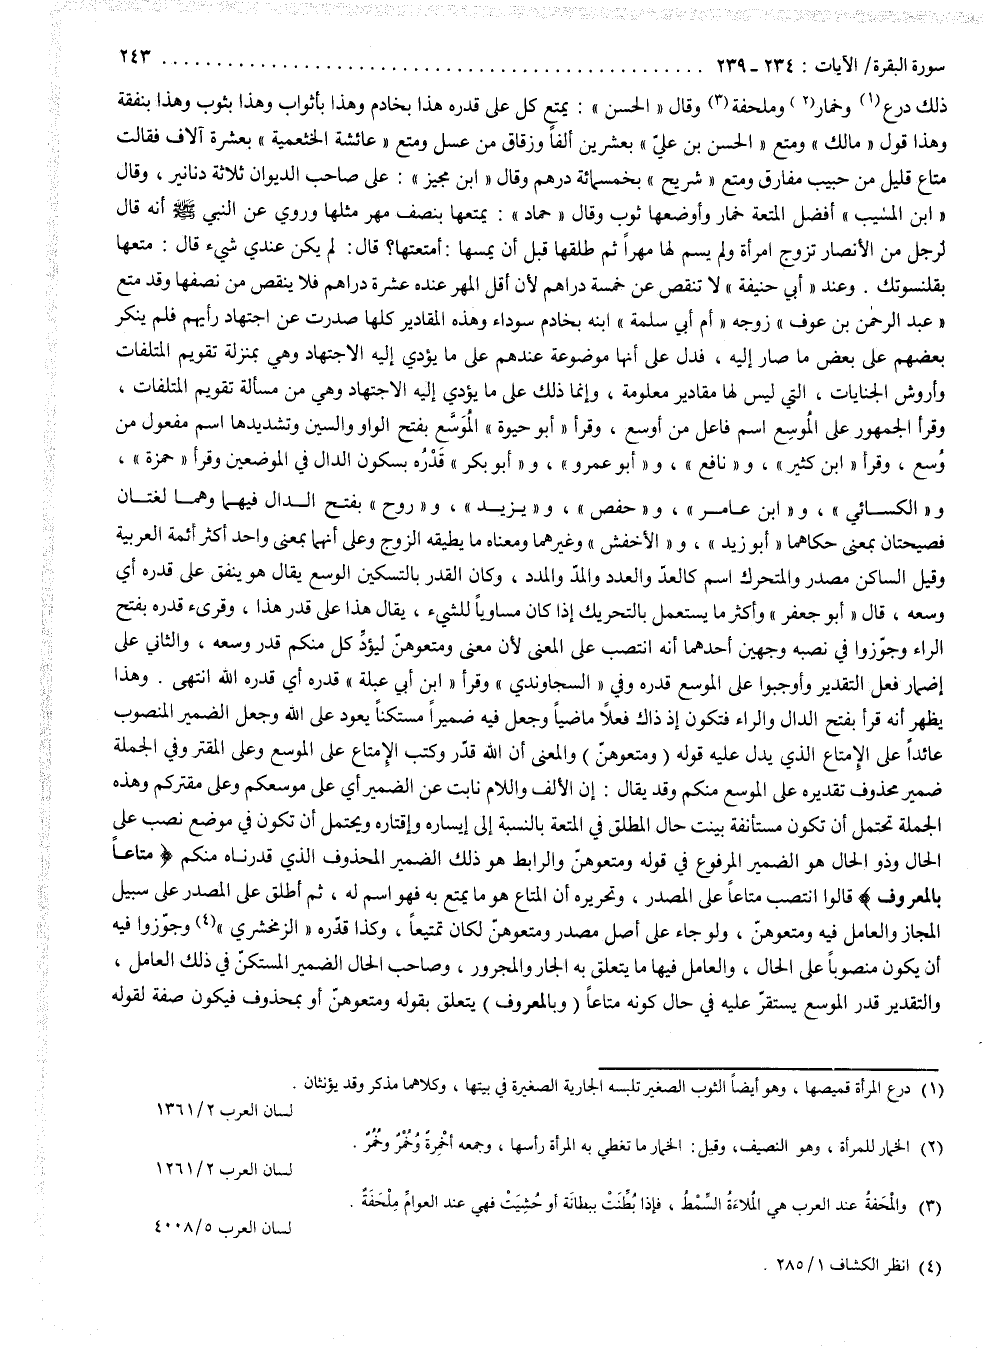 سورة البقرة/ الآيات : ٢٣٤ - ٢٣٩ ........................................ ٢٤٣
ذلك درع(١) وخمار(٢) وملحفة(٣) وقال « الحسن » : يمتع كل على قدره هذا بخادم وهذا بأثواب وهذا بثوب وهذا بنفقة
وهذا قول « مالك » ومتع « الحسن بن عليّ » بعشرين ألفاً وزقاق من عسل ومتع « عائشة الخثعمية » بعشرة آلاف فقالت
متاع قليل من حبيب مفارق ومتع « شريح » بخمسمائة درهم وقال « ابن مجيز » : على صاحب الديوان ثلاثة دنانير ، وقال
« ابن المسيب » أفضل المتعة خمار وأوضعها ثوب وقال « حماد » : يمتعها بنصف مهر مثلها وروي عن النبي ﷺ أنه قال
لرجل من الأنصار تزوج امرأة ولم يسم لها مهراً ثم طلقها قبل أن يمسها :أمتعتها؟ قال: لم يكن عندي شيء قال : متعها
بقلنسوتك . وعند « أبي حنيفة » لا تنقص عن خمسة دراهم لأن أقل المهر عنده عشرة دراهم فلا ينقص من نصفها وقد متع
« عبد الرحمٰن بن عوف » زوجه « أم أبي سلمة » ابنه بخادم سوداء وهذه المقادير كلها صدرت عن اجتهاد رأيهم فلم ينكر
بعضهم على بعض ما صار إليه ، فدل على أنها موضوعة عندهم على ما يؤدي إليه الاجتهاد وهي بمنزلة تقويم المتلفات
وأروش الجنايات ، التي ليس لها مقادير معلومة ، وإنما ذلك على ما يؤدي إليه الاجتهاد وهي من مسألة تقويم المتلفات ،
وقرأ الجمهور على المُوسِع اسم فاعل من أوسع ، وقرأ « أبو حيوة » المُوَسَّع بفتح الواو والسين وتشديدها اسم مفعول من
وُسع ، وقرأ « ابن كثير » ، و« نافع » ، و« أبو عمرو » ، و« أبو بكر » قَدْرُه بسكون الدال في الموضعين وقرأ « حمزة » ،
و« الكسائي » ، و« ابن عامر » ، و« حفص » ، و« يزيد » ، و« روح » بفتح الدال فيهما وهما لغتان
فصيحتان بمعنى حكاهما « أبو زيد » ، و« الأخفش » وغيرهما ومعناه ما يطيقه الزوج وعلى أنهما بمعنى واحد أكثر أئمة العربية
وقيل الساكن مصدر والمتحرك اسم كالعدّ والعدد والمدّ والمدد ، وكان القدر بالتسكين الوسع يقال هو ينفق على قدره أي
وسعه ، قال « أبو جعفر » وأكثر ما يستعمل بالتحريك إذا كان مساوياً للشيء ، يقال هذا على قدر هذا ، وقرىء قدره بفتح
الراء وجوّزوا في نصبه وجهين أحدهما أنه انتصب على المعنى لأن معنى ومتعوهنّ ليؤدِّ كل منكم قدر وسعه ، والثاني على
إضمار فعل التقدير وأوجبوا على الموسع قدره وفي « السجاوندي » وقرأ « ابن أبي عبلة » قدره أي قدره الله انتهى . وهذا
يظهر أنه قرأ بفتح الدال والراء فتكون إذ ذاك فعلاً ماضياً وجعل فيه ضميراً مستكناً يعود على الله وجعل الضمير المنصوب
عائداً على الإمتاع الذي يدل عليه قوله ( ومتعوهنّ ) والمعنى أن الله قدّر وكتب الإمتاع على الموسع وعلى المقتر وفي الجملة
ضمير محذوف تقديره على الموسع منكم وقد يقال : إن الألف واللام نابت عن الضمير أي على موسعكم وعلى مقتركم وهذه
الجملة تحتمل أن تكون مستأنفة بينت حال المطلق في المتعة بالنسبة إلى إيساره وإقتاره ويحتمل أن تكون في موضع نصب على
الحال وذو الحال هو الضمير المرفوع في قوله ومتعوهنّ والرابط هو ذلك الضمير المحذوف الذي قدرناه منكم ﴿ متاعاً
بالمعروف ﴾ قالوا انتصب متاعاً على المصدر ، وتحريره أن المتاع هو ما يمتع به فهو اسم له ، ثم أطلق على المصدر على سبيل
المجاز والعامل فيه ومتعوهنّ ، ولو جاء على أصل مصدر ومتعوهنّ لكان تمتيعاً ، وكذا قدّره « الزمخشري »(٤) وجوّزوا فيه
أن يكون منصوباً على الحال ، والعامل فيها ما يتعلق به الجار والمجرور ، وصاحب الحال الضمير المستكنّ في ذلك العامل ،
والتقدير قدر الموسع يستقرّ عليه في حال كونه متاعاً ( وبالمعروف ) يتعلق بقوله ومتعوهنّ أو بمحذوف فيكون صفة لقوله
(١) درع المرأة قميصها ، وهو أيضاً الثوب الصغير تلبسه الجارية الصغيرة في بيتها ، وكلاهما مذكر وقد يؤنثان .
لسان العرب ١٣٦١/٢
(٢) الخمار للمرأة ، وهو النصيف، وقيل: الخمار ما تغطي به المرأة رأسها ، وجمعه أخْمِرةً وُخُمْرٌ وخُمُرٌ .
لسان العرب ١٢٦١/٢
(٣) والمْحَفةُ عند العرب هي المُلاءَةُ السِّمْطُ ، فإذا بُطِّنَتْ ببطانَة أو حُشِيَتْ فهي عند العوامِّ مِلْحَفَةٌ .
لسان العرب ٤٠٠٨/٥
(٤) انظر الكشاف ٢٨٥/١ .